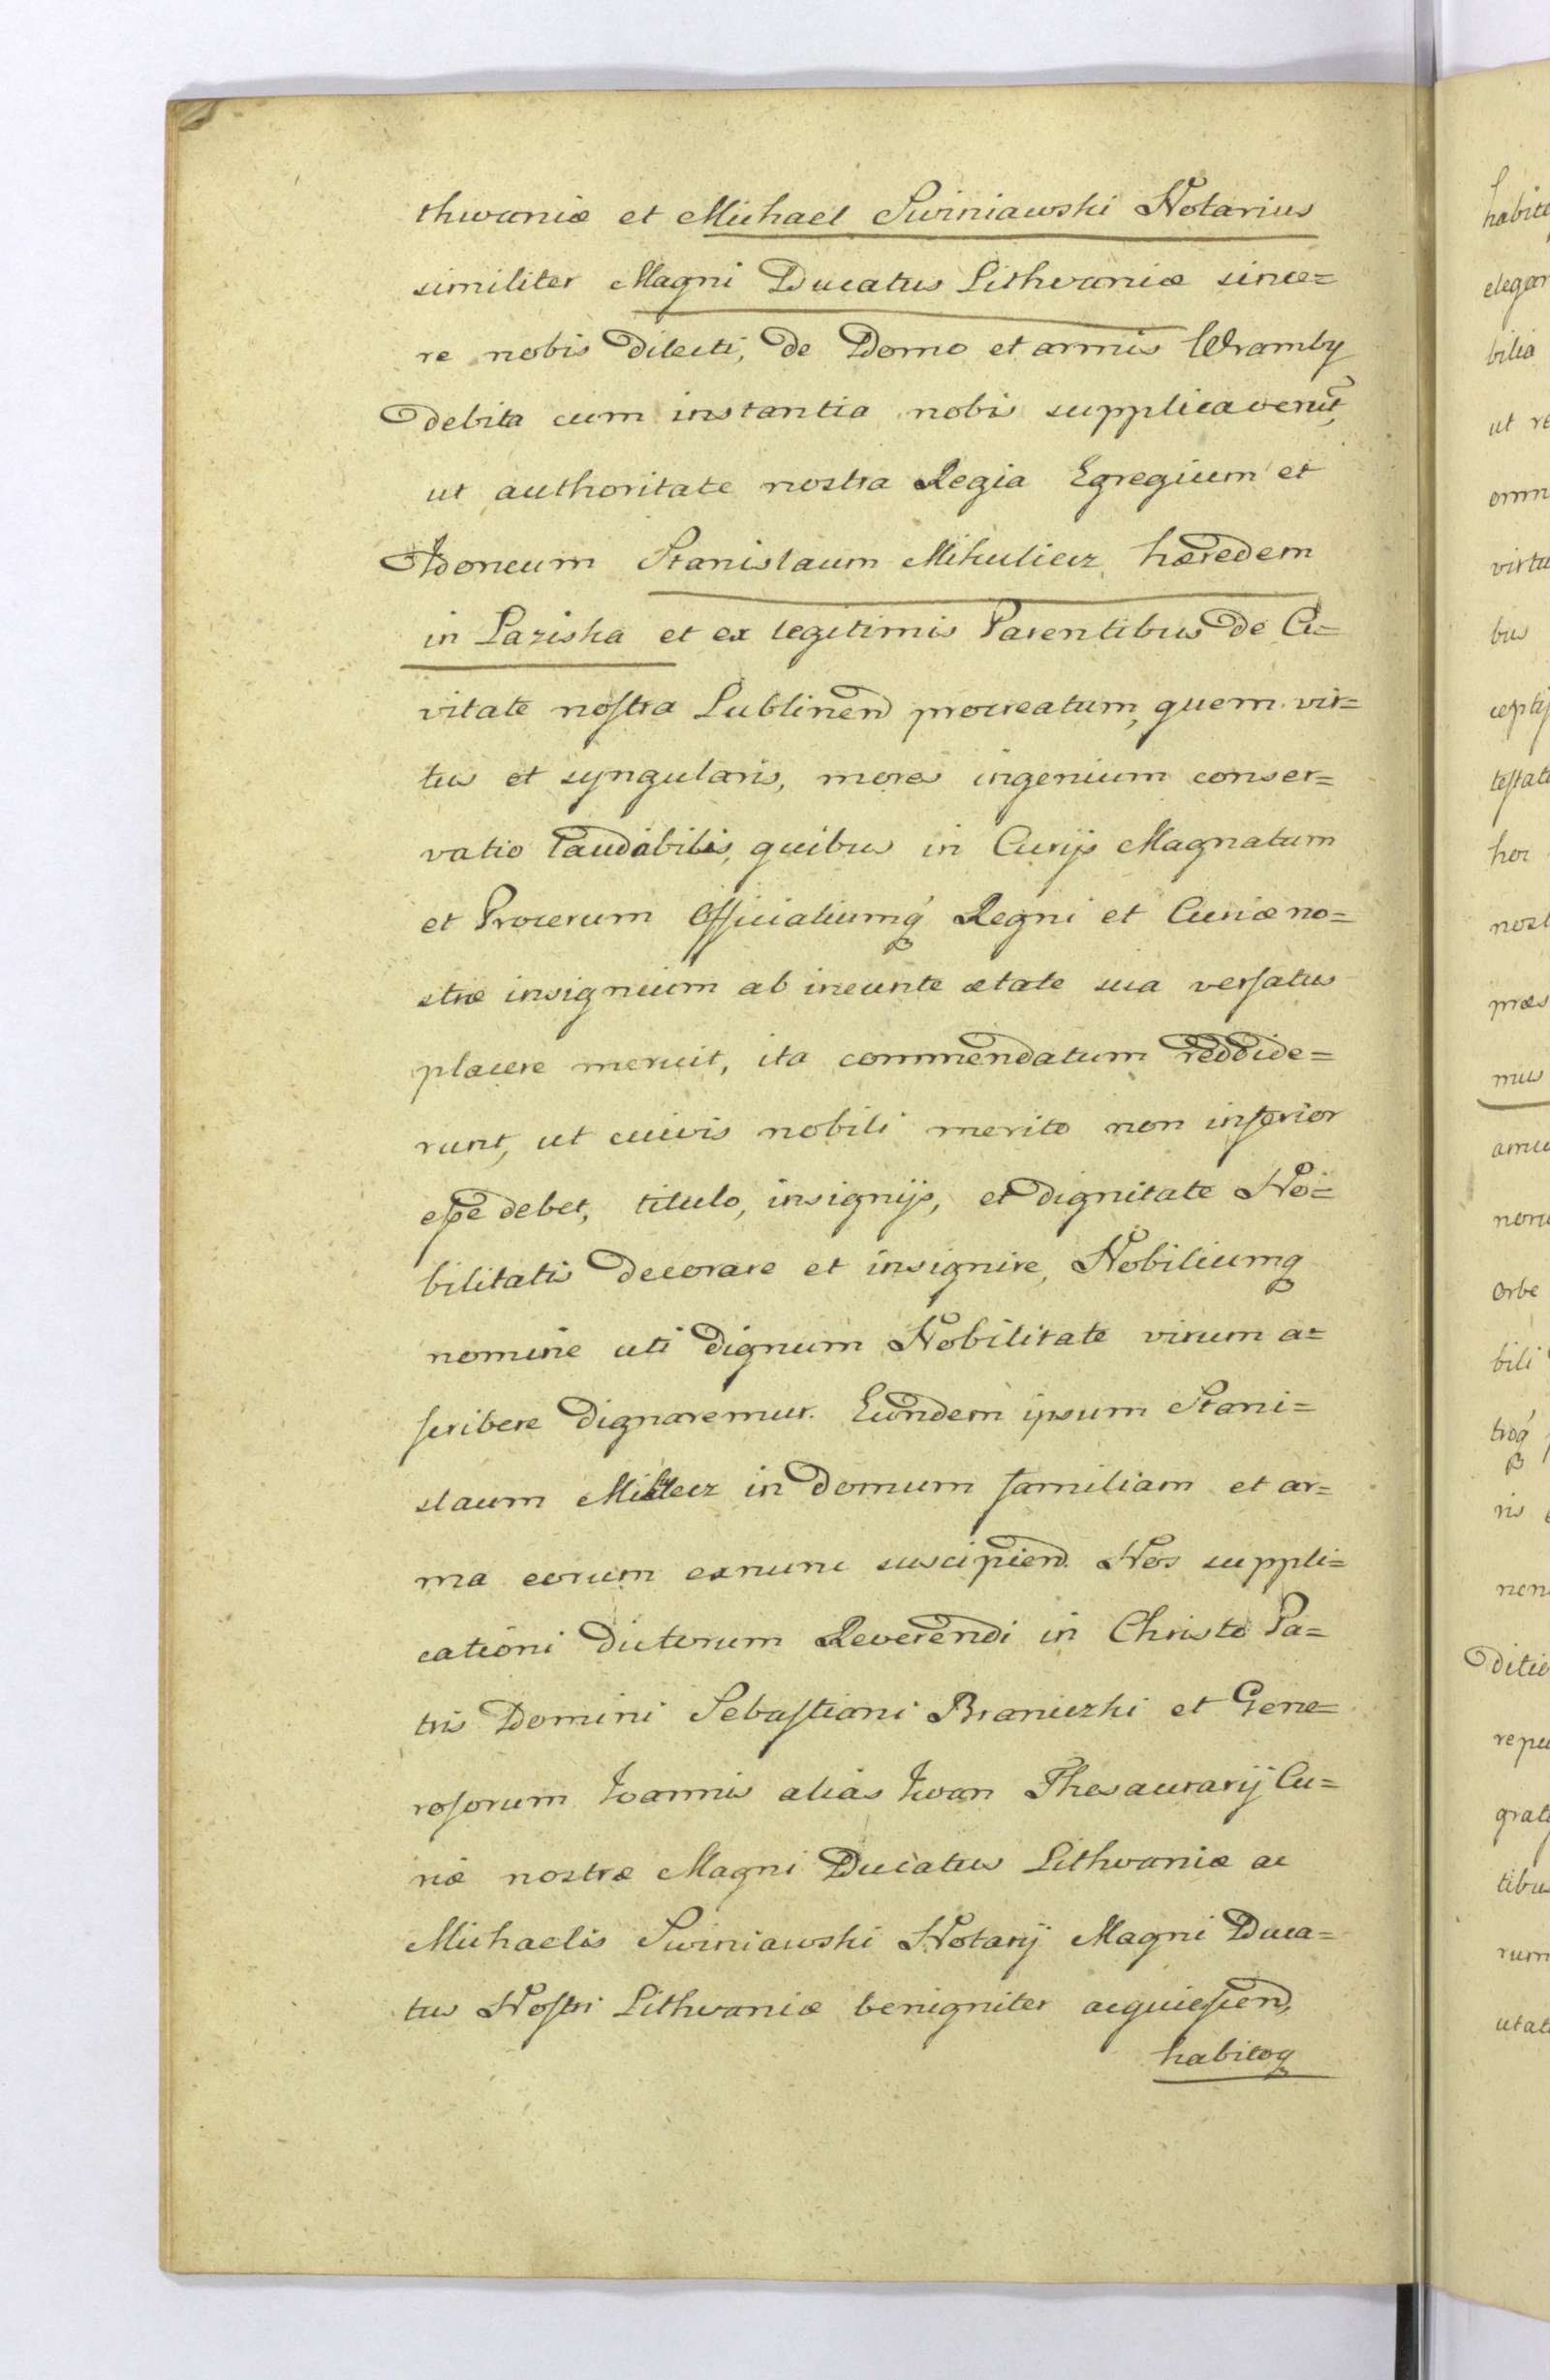 thwaniæ et Michael Swiniawski Notarius
similiter Magni Ducatus Lithvaniæ since=
re nobis dilecti, de Domo et armis Wramby
debita cum instantia nobis supplicaverut,
ut authoritate nostra Regia Egregium et
Idoneum Stanislaum Mikulicz hæredem
in Laziska et ex legitimis Parentibus de Ci=
vitate nostra Lublinen procreatum, quem vir=
tus et syngularis, mores ingenium conser=
vatio laudabilis, quibus in Curijs Magnatum
et Procerum Officialiumq Regni et Curiæ no=
stræ insignium ab ineunte ætate sua versatus
placere meruit, ita commendatum reddide=
runt, ut cuivis nobili merito non inferior
esse debet, titulo, insignijs, et dignitate No=
bilitatis decorare et insignire, Nobiliumq
nomine uti dignum Nobilitate virum a=
scribere dignaremur. Eundem ipsum Stani=
slaum in domum familiam et ar=
ma eorum exnunc suscipien. Nos suppli=
cationi dictorum Reverendi in Christo Pa=
tris Domini Sebastiani Braniczki et Gene=
rosorum Ioannis alias Iwan Thesaurarij Cu=
riæ nostræ Magni Ducatus Lithvaniæ ac
Michaelis Swiniawski Notarij Magni Duca=
tus Nostri Lithvaniæ benigniter acquiescen,
habitoq
habit
elegan
bilia
ut re
omn
virtu
bus
ceptij
testat
hoc
nost
præs
mus
amu
noru
orbe
bili
troq
ris
non
ditio
repu
grat
tibu
rum
utat